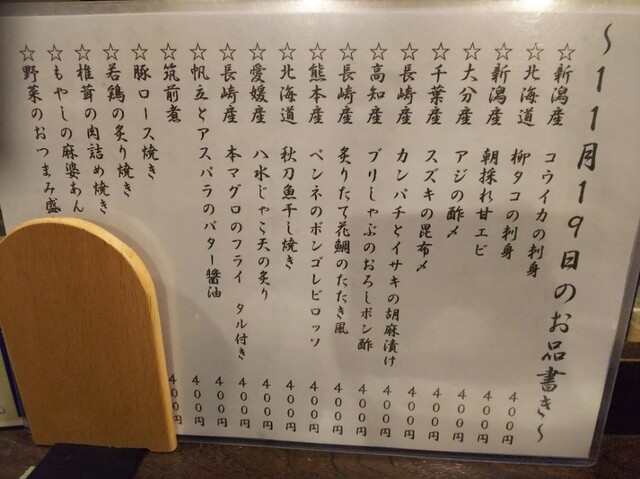 ～11月19日のお品書き～
☆新潟産 コウイカの刺身 400円
☆北海道 柳タコの刺身 400円
☆新潟産 朝採れ甘エビ 400円
☆大分産 アジの酢〆 400円
☆千葉産 スズキの昆布〆 400円
☆長崎産 カンパチとイサキの胡麻漬け 400円
☆高知産 ブリしゃぶのおろしポン酢 400円
☆長崎産 炙りたて花鯛のたたき風 400円
☆熊本産 ペンネのボンゴレビロッソ 400円
☆北海道 秋刀魚干し焼き 400円
☆愛媛産 八水じゃこ天の炙り 400円
☆長崎産 本マグロのフライ タル付き 400円
☆帆立とアスパラのバター醤油 400円
☆筑前煮 400円
☆豚ロース焼き
☆若鶏の炙り焼き
☆椎茸の肉詰め焼き
☆もやしの麻婆あん
☆野菜のおつまみ盛